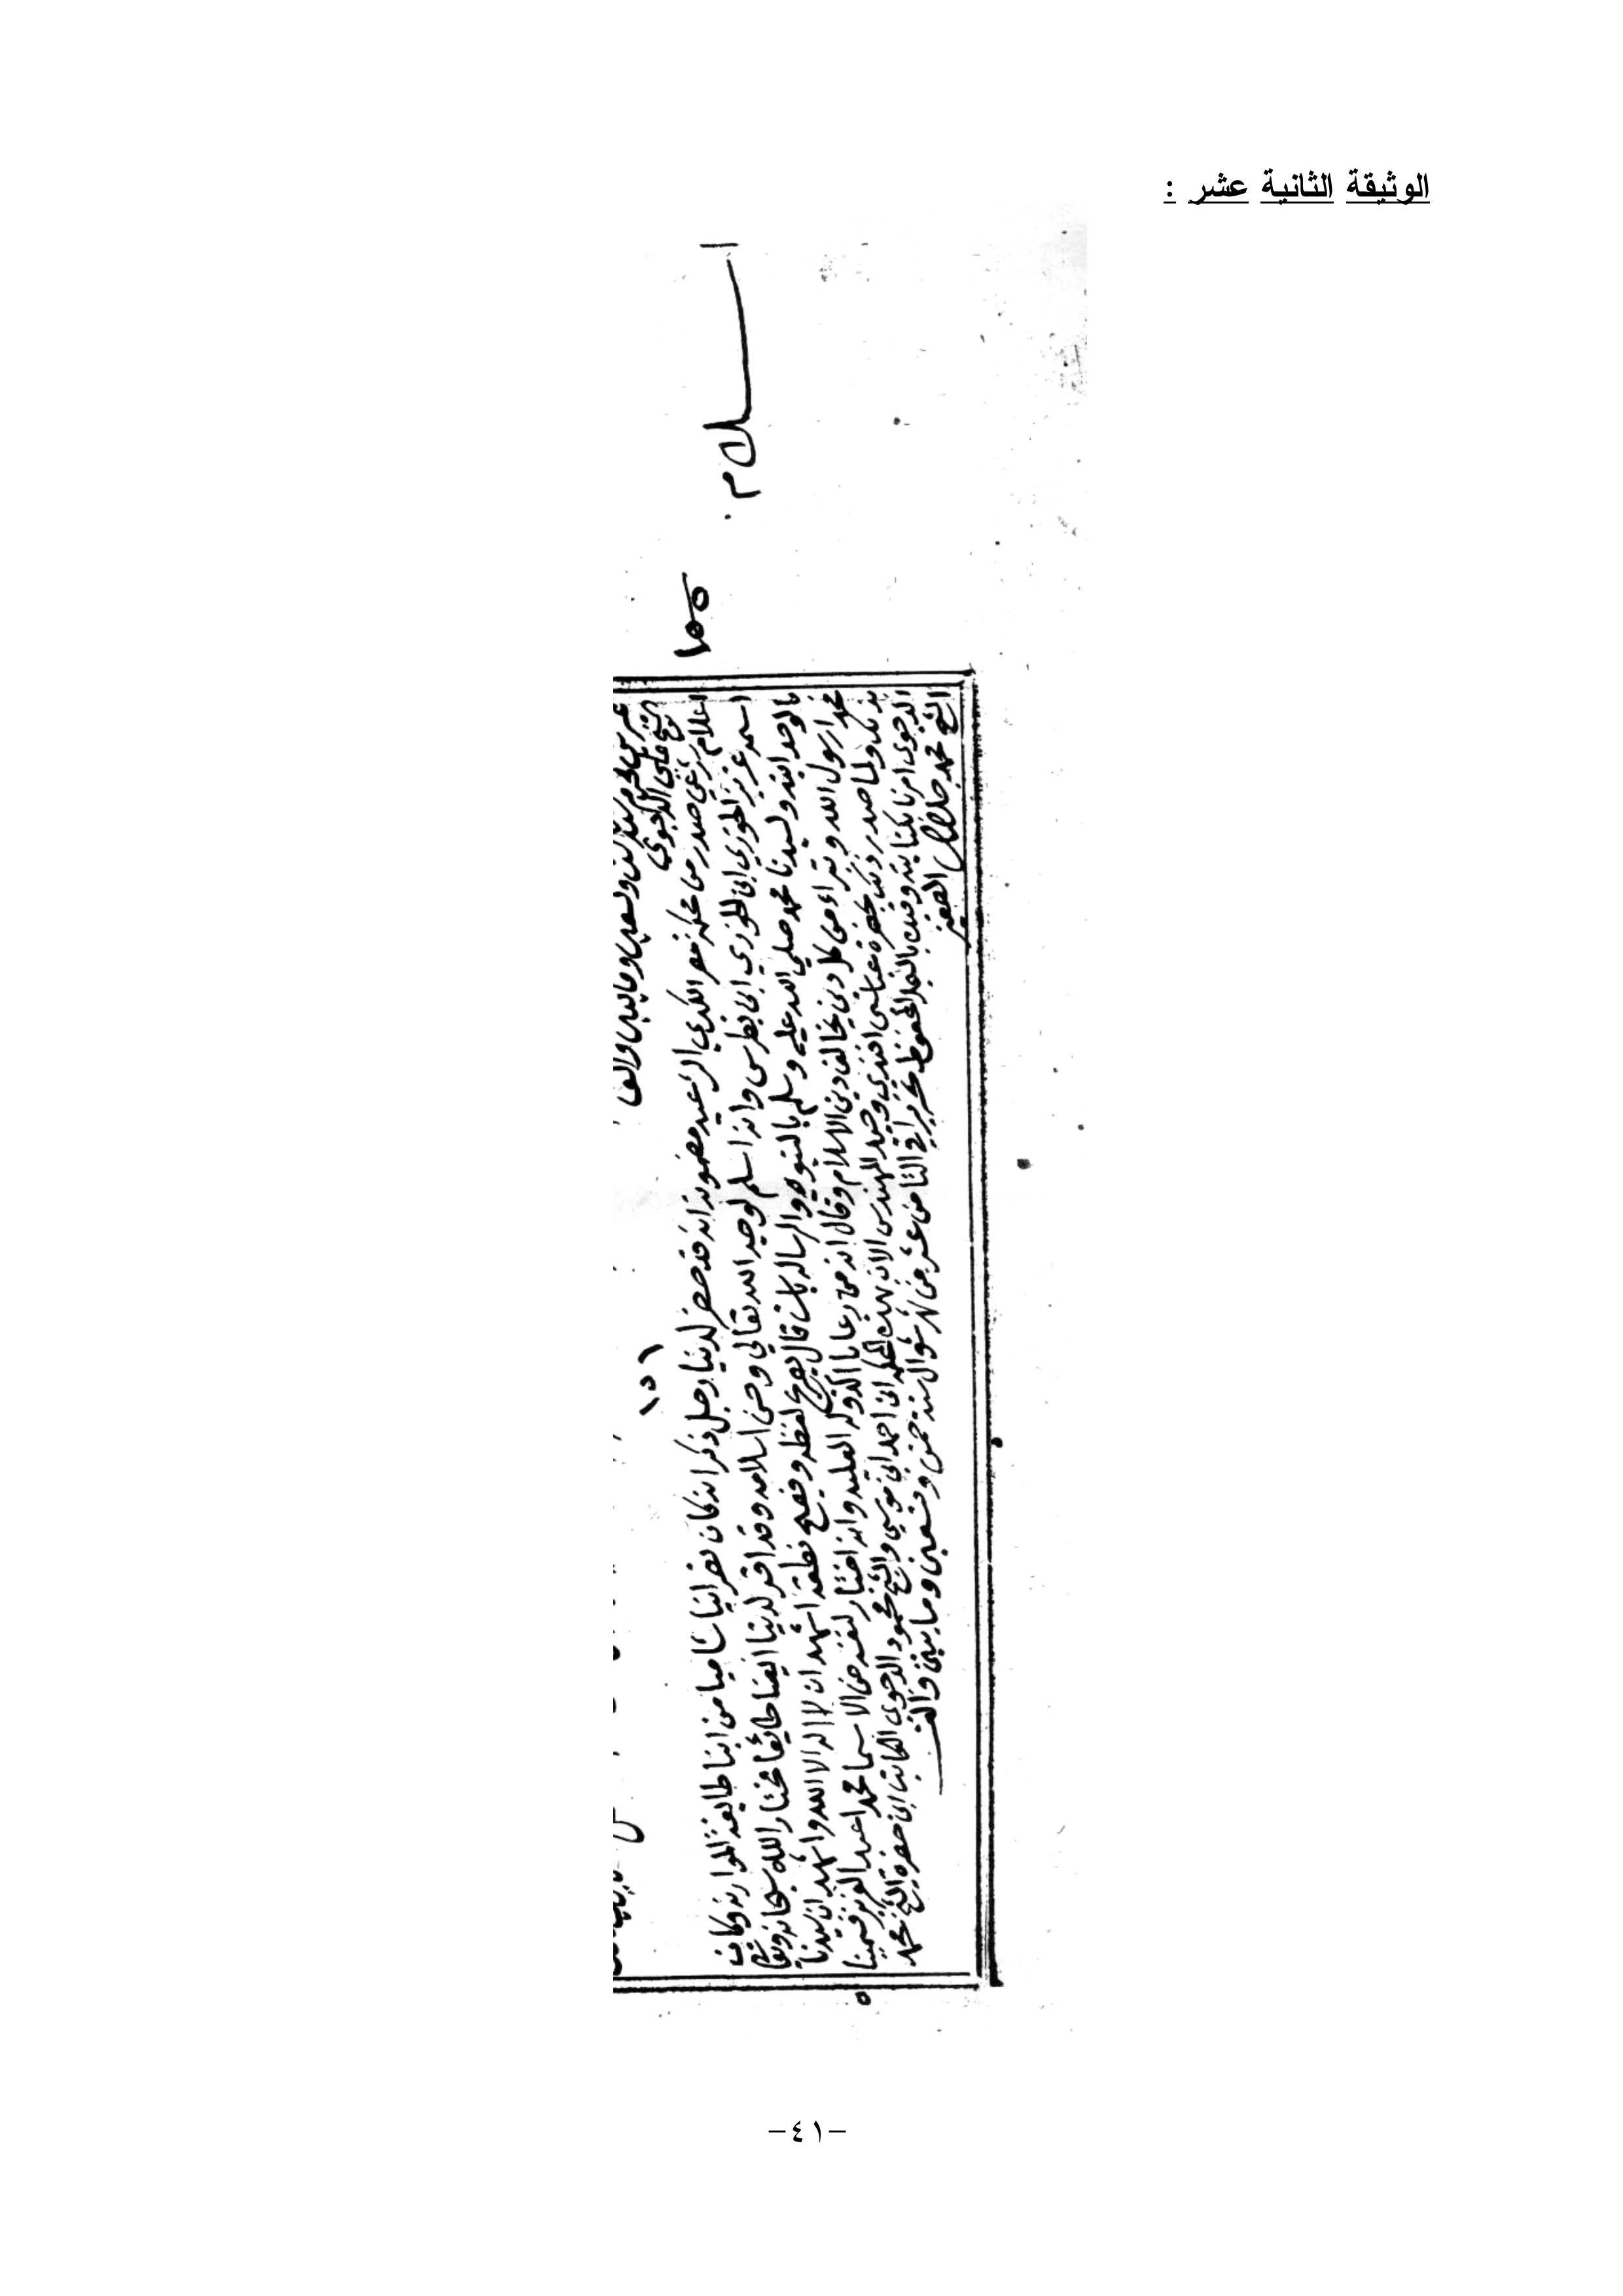 الوثيقة الثانية عشر :
اسلام
١٥٥
وتسعين ومايتين والف
الشيخ على الدجوى
١٥٦
اعلام شرعي صدر من محكمة مصر الكبرى الشرعيه مضمونه انه قد حضر لدينا رجل ذكر انه كان نصرانيا شاميا من ابنا طايفة الموارنه وكان
اسمه عزيز الخوري ابن الخوري ابن بطرس وانه اسلم لوجه الله تعالي وحسن اسلامه وقد اقر لدينا ايضا طائعا مختارا لله سبحانه وتعالى
بالوحدانيه ولسيدنا محمد صلي الله عليه وسلم بالنبوه والرساله بان قال بصريح لفظه وفصيح نطقه اشهد ان لا اله الا الله واشهد ان سيدنا
محمدا رسول الله وتبراء من كل دين يخالف دين الاسلام وقال انه من رعايا الدوله العليه وانه اختار لنفسه من الاسما محمد عبد العزيز فسمينا
بذلك ولما صدر ذلك بحضرة عباس افندي وحيد المهندس الان بهذه المحكمه ابن احمد ابن موسي والشيخ محمود الدجوى الكاتب ابن حضرة الشيخ محمد
الدجوى امرنا بكتابته وقيده بالسجل المحفوظ تحريرا في الثامن عشر من شهر شوال سنة خمس وتسعين ومايتين والف
الشيخ محمد الصغير
٥
-٤١-